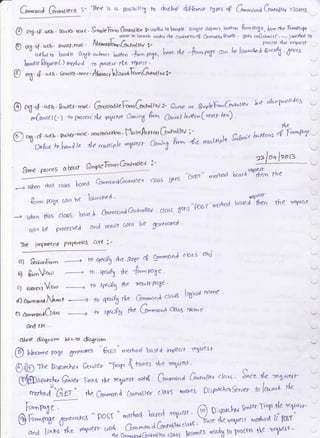 Command Controllers :- There is a possibility to develop different types of Command Controller classes
① org.sf.web.servlet.mvc. SimpleFormController :- useful to handle single submit button form page, here the Formpage
must be launch under the control of Controller class, goes automatically to
process the request
② org.sf.web.servlet.mvc. AbstractFormController :-
useful to handle single submit button form page, here the form page can be launched directly, goes
handleRequest() method to process the request.
③ org.sf.web.servlet.mvc. AbstractWizardFormController :-
④ org.sf.web.servlet.mvc. CancellableFormController :- Same as SimpleFormController but also provides
onCancel(-) to process the request coming from Cancel button
⑤ org.sf.web.servlet.mvc. MultiActionController :-
Useful to handle the multiple requests coming from the multiple Submit buttons of Formpage
22/04/2013
Some points about SimpleFormController :-
→ When this class based CommandController class gets "GET" method based request then the
form page can be launched.
→ when this class based CommandController class gets "POST" method based request then the request
can be processed and result can be generated.
The important properties are :-
a) SessionForm → to specify the scope of Command class obj
b) formView → to specify the formpage.
c) success View → to specify the result page.
d) commandName → to specify the Command class logical name
e) commandClass → to specify the Command class name
and etc...
above diagram w.r.to diagram
① Welcome page generates GET method based implicit request
The Dispatcher Servlet Traps & takes the request.
Dispatcher Servlet links the request with Command Controller class. Since the request
method "GET" the Command Controller class makes DispatcherServlet to launch the
Formpage.
Formpage generates "POST" method based request. ⑩ Dispatcher Servlet Traps the request
and links the request with CommandController class. Since the request method is POST
the CommandController class becomes ready to process the request.